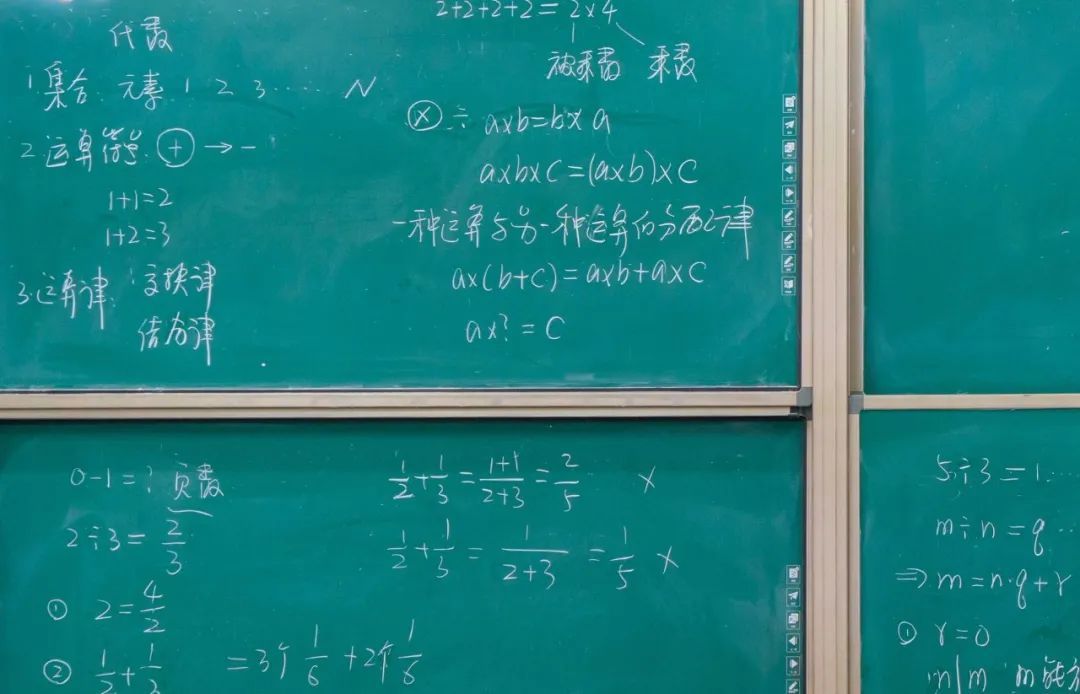 代数
1. 集合 元素 1 2 3 …… N
2. 运算符号. ⊕ → −
1+1=2
1+2=3
3. 运算律: 交换律
结合律
2+2+2+2=2×4
被乘数 乘数
ⓧ ÷ a×b=b×a
a×b×c=(a×b)×c
一种运算与另一种运算的分配律
a×(b+c)=a×b+a×c
a×?=c
0-1=? 负数
2÷3=2/3
① 2=4/2
② 1/2+1/3 =3个1/6+2个1/6
1/2+1/3=(1+1)/(2+3)=2/5 ×
1/2+1/3=1/(2+3)=1/5 ×
5÷3=1…
m÷n=q…
⇒m=n·q+r
① r=0
n|m m能